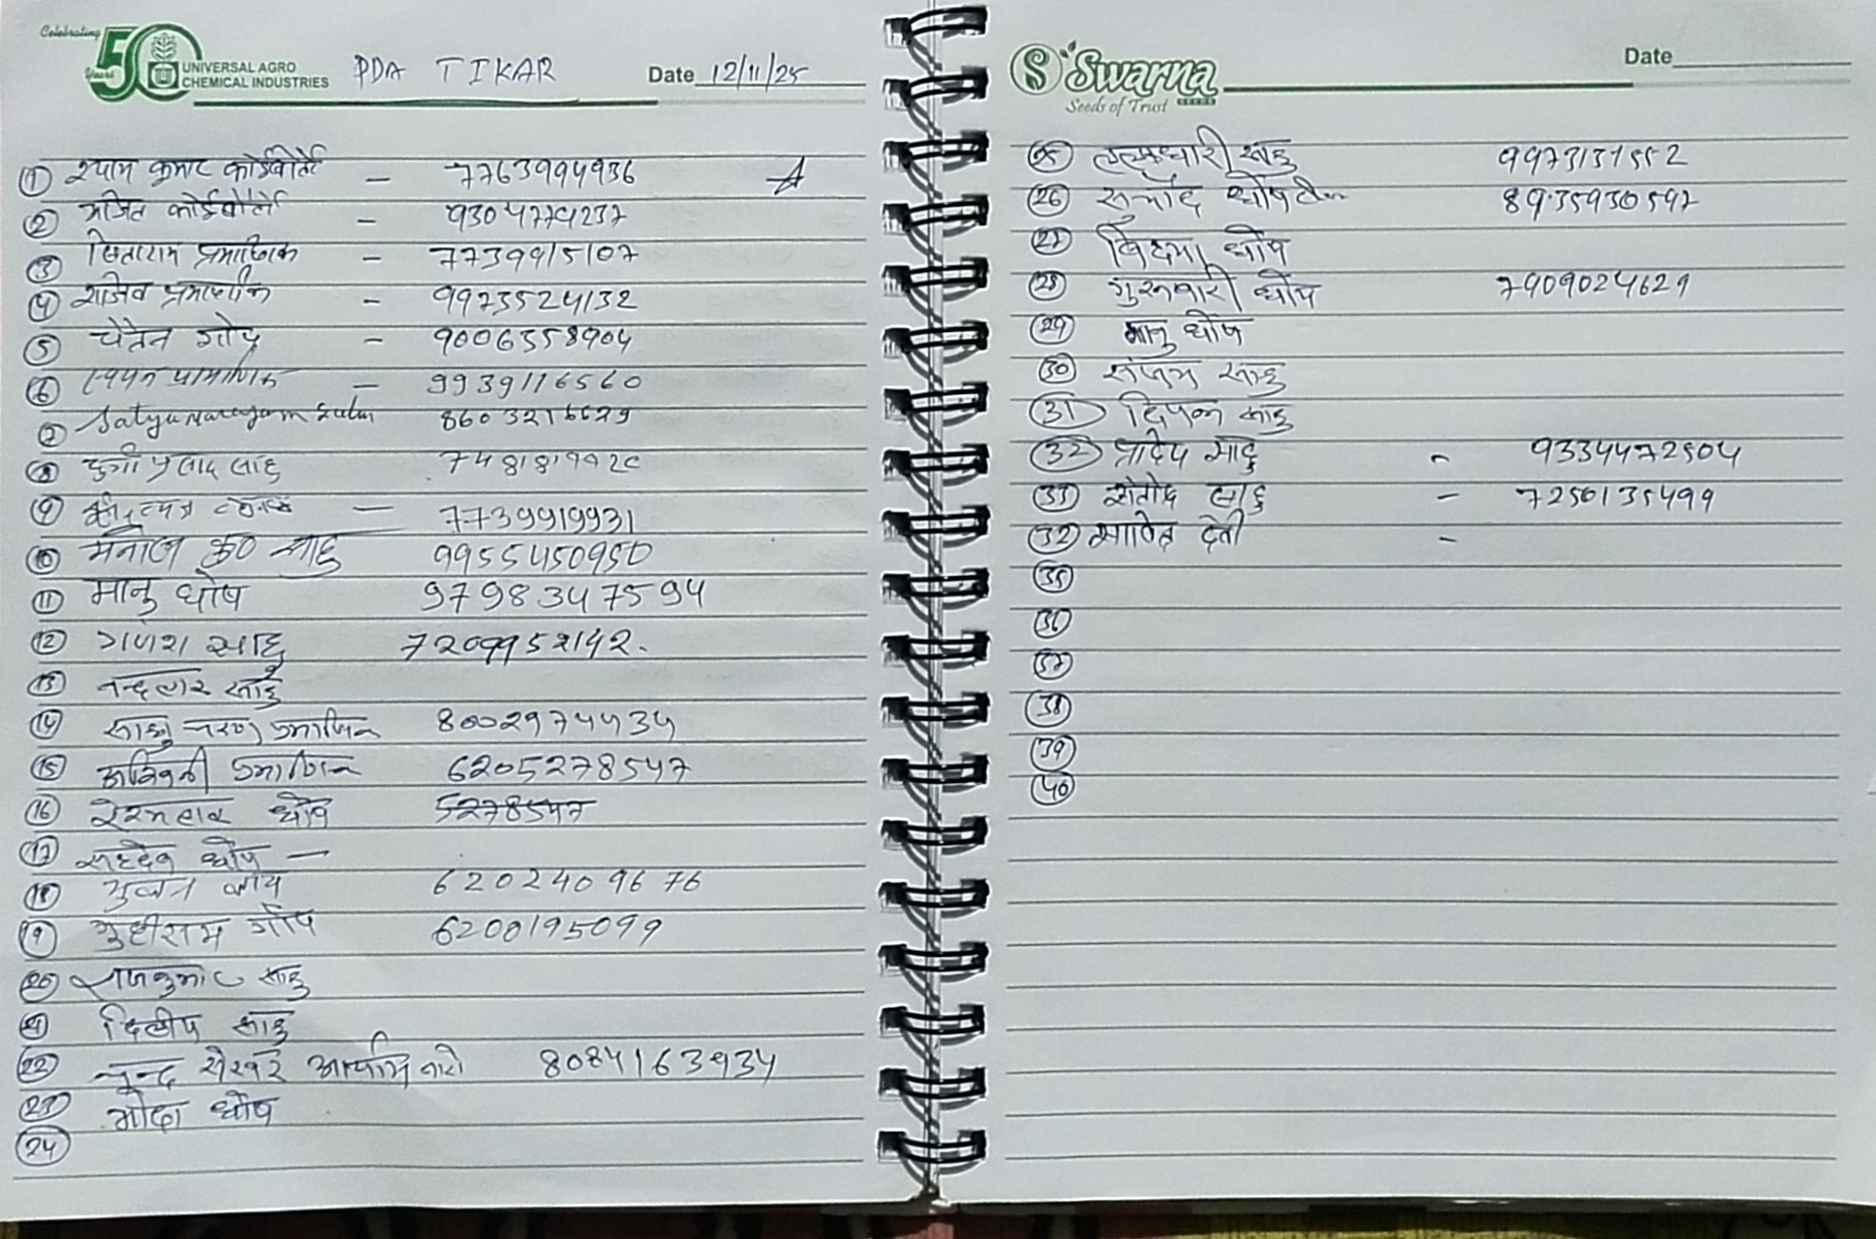 Celebrating 50 Years
UNIVERSAL AGRO
CHEMICAL INDUSTRIES
PDA TIKAR
Date 12/11/25
① श्याम कुमार कोईबोर्त - 7763994936
② अजित कोईबोर्त - 9304774237
③ सिताराम प्रमाणिक - 7739915107
④ राजेव प्रमाणिक - 9973524132
⑤ चेतन गोप - 9006358904
⑥ स्वपन प्रामाणिक - 9939116560
⑦ Satyanarayan 8603216629
⑧ दुर्गा प्रसाद साहु
⑨ - 7739919931
⑩ मनोज कु० साहु 9955450950
⑪ मानु घोष 9798347594
⑫ गणेश साहु 7209952142.
⑬ नन्दलाल साहु
⑭ साधु चरण प्रमाणिक 8002974434
⑮ अश्विनी प्रमाणिक 6205278547
⑯ घोष 5278547
⑰ सहदेव घोष -
⑱ 6202409676
⑲ गुहीराम गोप 6200195099
⑳ राजकुमार साहु
㉑ दिलीप साहु
㉒ चन्द्र सेखर 8084163934
㉓ घोष
㉔
Swarna
SEEDS
Seeds of Trust
Date
㉕ साहु 9973131552
㉖ घोष 8935930597
㉗ घोष
㉘ गुरुवारी घोष 7909024629
㉙ मानु घोष
㉚ संजय साहु
㉛ दिपक साहु
㉜ प्रदिप साहु - 9334472504
㉝ संतोष साहु - 7250135499
㉜ देवी -
㉟
㊱
㊲
㊳
㊴
㊵